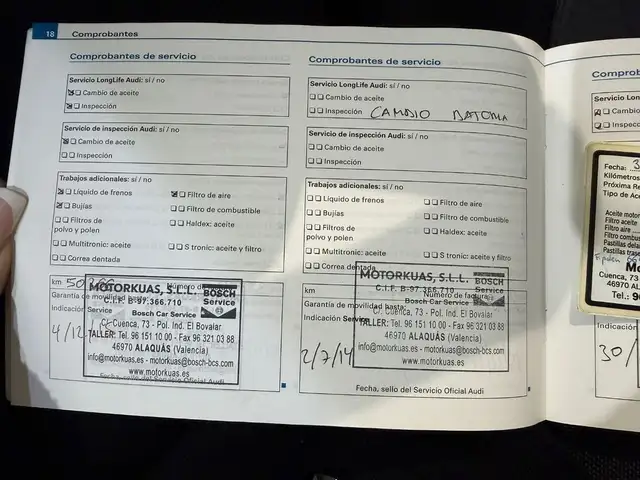 18 Comprobantes
Comprobantes de servicio
Servicio LongLife Audi: sí / no
Cambio de aceite
Inspección
Servicio de inspección Audi: sí / no
Cambio de aceite
Inspección
Trabajos adicionales: sí / no
Líquido de frenos
Filtro de aire
Bujías
Filtro de combustible
Filtros de
polvo y polen
Haldex: aceite
Multitronic: aceite
S tronic: aceite y filtro
Correa dentada
km
Número de
Garantía de movilidad hasta:
Indicación Service
4/12
MOTORKUAS, S.L.L.
C.I.F. B-97.366.710
Bosch Car Service
BOSCH
Service
C/ Cuenca, 73 - Pol. Ind. El Bovalar
TALLER: Tel. 96 151 10 00 - Fax 96 321 03 88
46970 ALAQUÀS (Valencia)
info@motorkuas.es - motorkuas@bosch-bcs.com
www.motorkuas.es
Fecha, sello del Servicio Oficial Audi
Comprobantes de servicio
Servicio LongLife Audi: sí / no
Cambio de aceite
Inspección CAMBIO BATERIA
Servicio de inspección Audi: sí / no
Cambio de aceite
Inspección
Trabajos adicionales: sí / no
Líquido de frenos
Filtro de aire
Bujías
Filtro de combustible
Filtros de
polvo y polen
Haldex: aceite
Multitronic: aceite
S tronic: aceite y filtro
Correa dentada
km
Número de factura
Garantía de movilidad hasta:
Indicación Service
2/7/14
MOTORKUAS, S.L.L.
C.I.F. B-97.366.710
Bosch Car Service
BOSCH
Service
C/ Cuenca, 73 - Pol. Ind. El Bovalar
TALLER: Tel. 96 151 10 00 - Fax 96 321 03 88
46970 ALAQUÀS (Valencia)
info@motorkuas.es - motorkuas@bosch-bcs.com
www.motorkuas.es
Fecha, sello del Servicio Oficial Audi
Comprob
Servicio Lo
Cam
Insp
Fecha: 3
Kilómetros
Próxima Re
Tipo de Ace
Aceite motor
Filtro aceite
Filtro aire
Filtro combu
Pastillas dela
Pastillas tras
Cuenca, 73
46970 AL
Tel.: 96
Indicación
30/